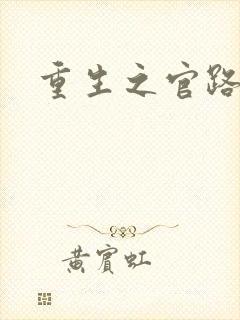 重生之官路
黄宾虹